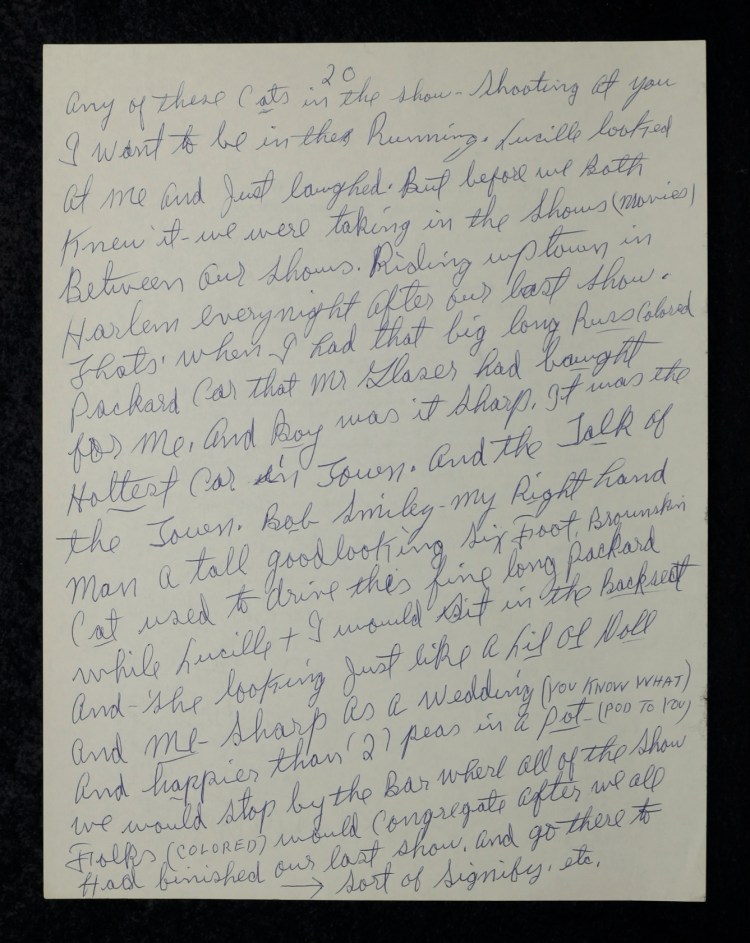 20
any of these Cats in the show - Shooting at you
I want to be in the Running. Lucille looked
at me and Just laughed. But before we Both
Knew it - we were taking in the Shows (Movies)
Between our shows. Riding uptown in
Harlem everynight after our last show.
Thats' when I had that big long Russ Colored
Packard Car that Mr Glaser had bought
for me. And Boy was it Sharp. It was the
Hottest Car in Town. And the Talk of
the Town. Bob Smiley - my Right hand
man a tall goodlooking Six Foot, Brownskin
Cat used to drive this fine long Packard
while Lucille + I would sit in the Backseat
And - she looking Just like a Lil Ol Doll
and Me - Sharp as a Wedding (YOU KNOW WHAT)
And happier than '2' peas in a Pot - (POD TO YOU)
we would stop by the Bar where all of the Show
Folks (COLORED) would Congregate after we all
Had finished our last show. and go there to
→ Sort of Signify. etc.